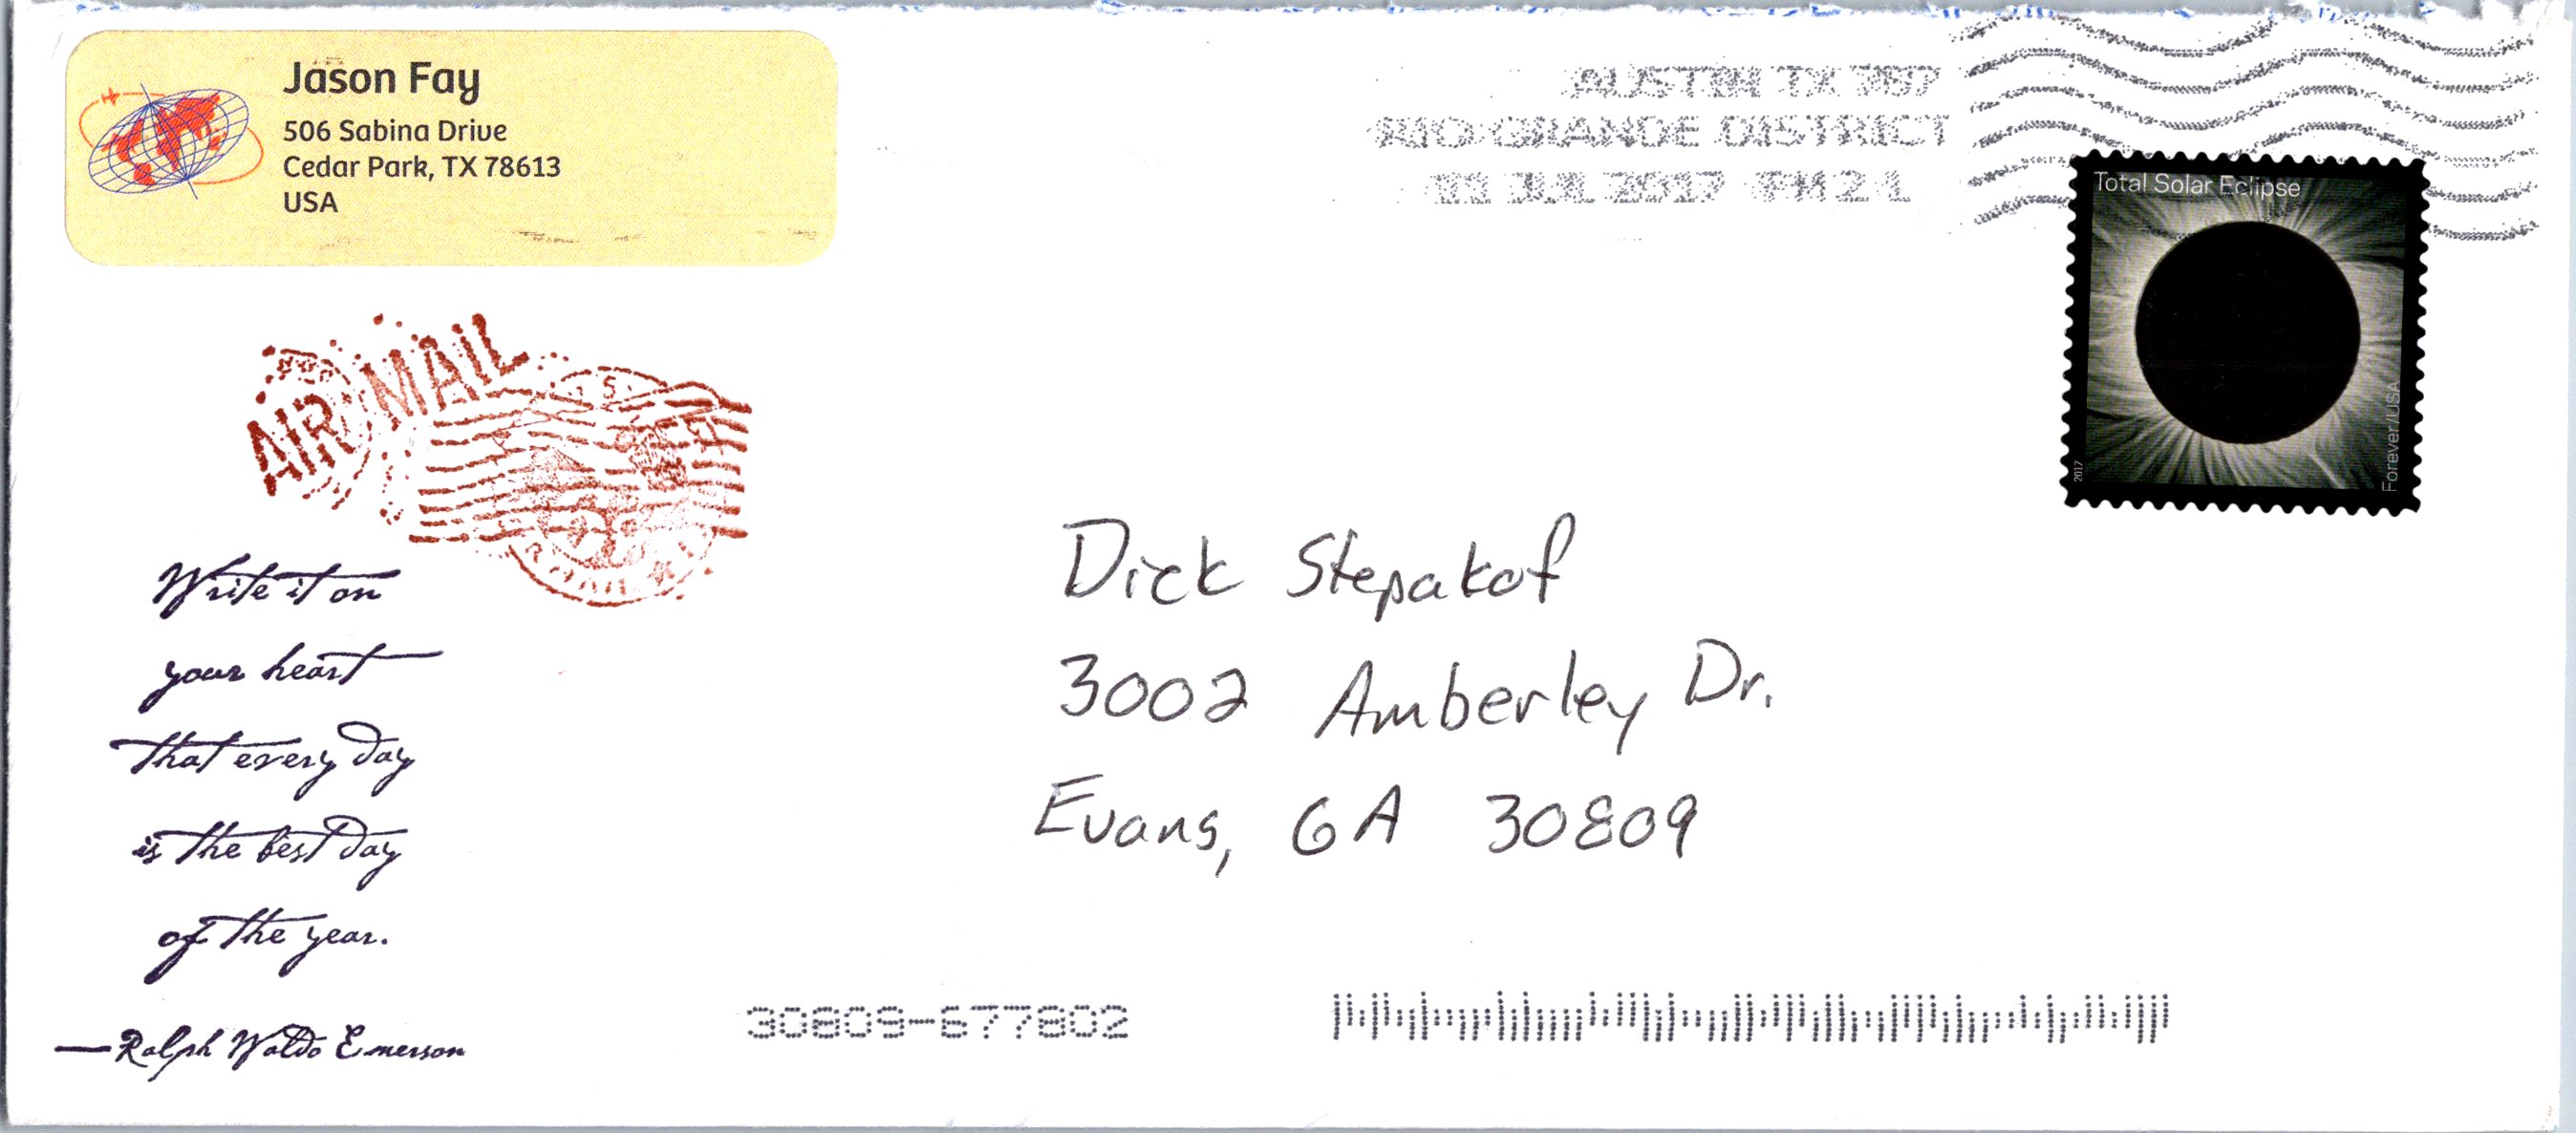 Jason Fay
506 Sabina Drive
Cedar Park, TX 78613
USA
AUSTIN TX 787
RIO GRANDE DISTRICT
11 JUL 2017 PM 2 L
Total Solar Eclipse
Forever/USA
2017
AIR MAIL
Write it on
your heart
that every day
is the best day
of the year.
—Ralph Waldo Emerson
Dick Stepakof
3002 Amberley Dr.
Evans, GA 30809
30809-677802